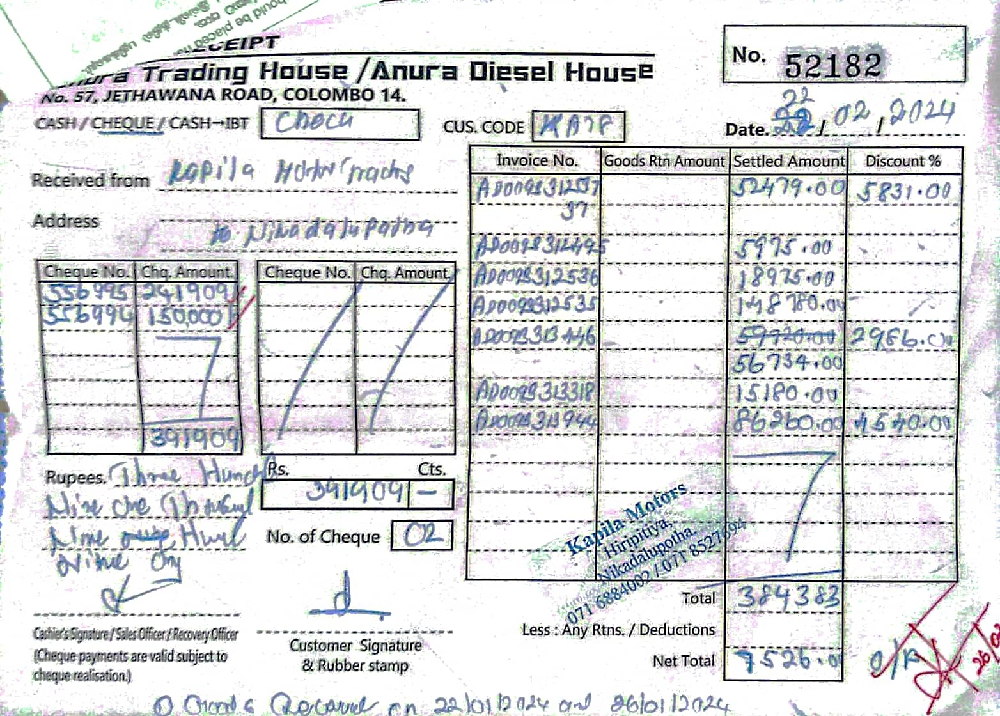 RECEIPT
Anura Trading House / Anura Diesel House
No. 57, JETHAWANA ROAD, COLOMBO 14.
No. 52182
CASH / CHEQUE / CASH→IBT
CUS. CODE
Date. 22/02,2024
Received from Kapila Motor
Address to Nikadalupotha
Invoice No. Goods Rtn Amount Settled Amount Discount %
52479.00 5831.00
37
AD0093312495 5975.00
AD0093312536 18975.00
AD0093312535 148780.00
AD0093313446 59720.00 2986.00
56734.00
AD0093313318 15180.00
AD0093313944 86260.00 4540.00
Cheque No. Chq. Amount Cheque No. Chq. Amount
556995 241909
556994 150,000
391909
Rupees. Three Hund
Nine One Thousand
Nine Hund
Nine Only
Rs. Cts.
391909 -
No. of Cheque 02
Kapila Motors
Hiripitiya,
Nikadalupotha.
071 6884002 / 071 8527694
Total 384383
Less : Any Rtns. / Deductions
Net Total 7526.0 O/P
26/02
Cashier's Signature / Sales Officer / Recovery Officer
(Cheque payments are valid subject to
cheque realisation.)
Customer Signature
& Rubber stamp
on 22/01/2024 and 26/01/2024